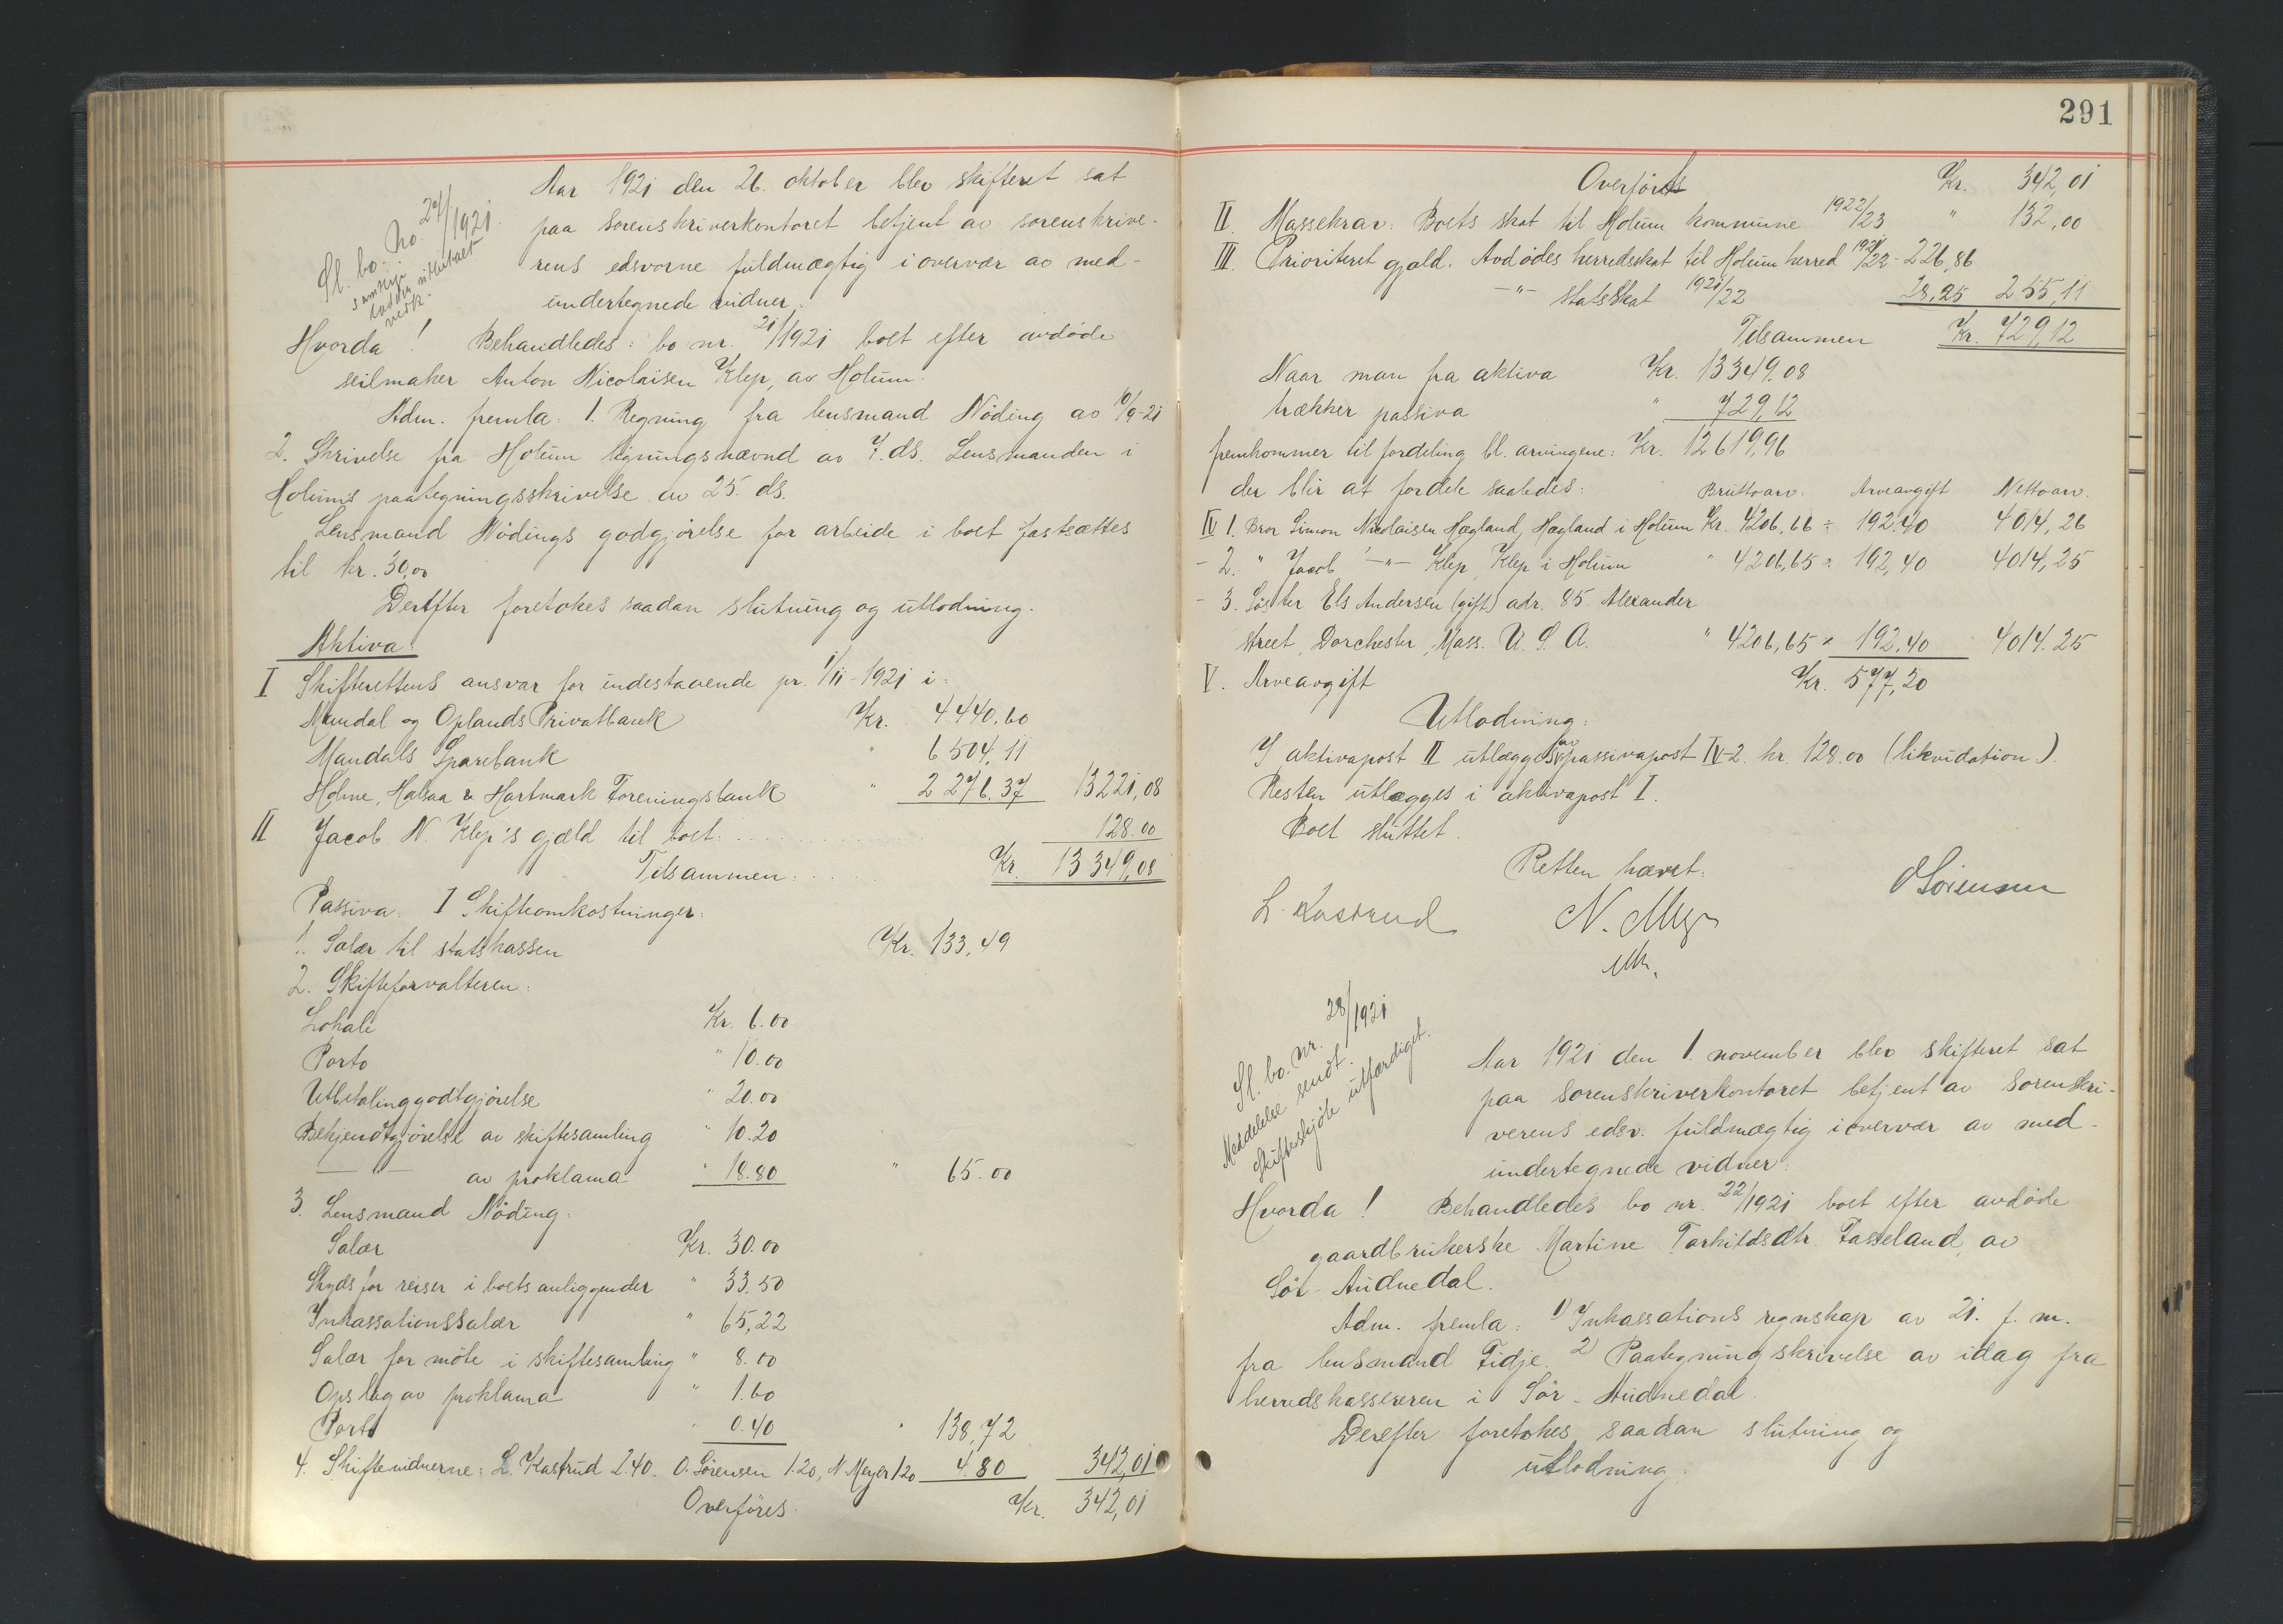 Sl. bo. No. 27/1921.
Aar 1921 den 26. oktober blev skifteret sat
paa sorenskriverkontoret betjent av sorenskrive-
rens edsvorne fuldmægtig i overvær av med-
undertegnede vidner.
Hvorda! Behandledes: bo nr. 21/1921 boet efter avdøde
seilmaker Anton Nicolaisen Klep, av Holum.
Adm. fremla: 1. Regning fra lensmand Nöding av 10/9-21
2. Skrivelse fra Holum ligningsnævnd av 7. ds. Lensmanden i
Holums paategningsskrivelse av 25. ds.
Lensmand Nödings godgjörelse for arbeide i boet fastsættes
til kr. 30,00
Derefter foretokes saadan slutning og utlodning.
Aktiva:
I Skifterettens ansvar for indestaaende pr. 1/11-1921 i:
Mandal og Oplands Privatbank Kr. 4440.60
Mandals Sparebank " 6504,11
Holme, Halsaa & Hartmark Foreningsbank " 2276.37 13221,08
II Jacob N. Klep's gjæld til boet: 128.00
Tilsammen: Kr. 13349,08
Passiva: I Skifteomkostninger:
1. Salær til statskassen Kr. 133,49
2. Skifteforvalteren:
Lokale Kr. 6.00
Porto " 10.00
Utbetalinggodtgjörelse " 20.00
Bekjendtgjörelse av skiftesamling " 10.20
— — av proklama " 18.80 " 65.00
3. Lensmand Nöding:
Salær Kr. 30.00
Skyds for reiser i boets anliggender " 33.50
Inkassationssalær " 65,22
Salær for möte i skiftesamling " 8.00
Opslag av proklama " 1.60
Porto " 0.40 " 138,72
4. Skiftevidnerne: L. Kastrud 2.40. O. Sörensen 1.20, N. Meyer 1.20 4.80 342,01
Overföres Kr. 342,01
291
Overfört Kr. 342,01
II. Massekrav: Boets skat til Holum kommune 1922/23 " 132,00
III. Prioriteret gjæld. Avdødes herredsskat til Holum herred 1921/22 - 226,86
-"- statsskat 1921/22 28,25 255,11
Tilsammen Kr. 729,12
Naar man fra aktiva Kr. 13349.08
trækker passiva " 729,12
fremkommer til fordeling bl. arvingene: Kr. 12619,96
der blir at fordele saaledes: Bruttoarv. Arveavgift Nettoarv.
IV 1. Bror Simon Nicolaisen Hægland, Hægland i Holum Kr. 4206,66 ÷ 192.40 4014,26
- 2. " Jacob -"- Klep, Klep i Holum " 4206,65 ÷ 192,40 4014,25
- 3. Söster Els Andersen (gift) adr. 85. Alexander
street, Dorchester, Mass. U. S. A. " 4206,65 ÷ 192.40 4014.25
V. Arveavgift Kr. 577,20
Utlodning:
I aktivapost II utlægges av passivapost IV-2. kr. 128.00 (likvidation).
Resten utlægges i aktivapost I.
Boet sluttet.
Retten hævet.
L. Kastrud N. Meyer O Sörensen
Sl. bo. nr. 28/1921
Meddelelse sendt.
Skifteskjöte utfærdiget.
Aar 1921 den 1. november blev skifteret sat
paa sorenskriverkontoret betjent av sorenskri-
verens edsv. fuldmægtig i overvær av med-
undertegnede vidner:
Hvorda! Behandledes bo nr. 22/1921 boet efter avdøde
gaardbrukerske Martine Tarkildsdtr. Fasseland, av
Sör-Audnedal.
Adm. fremla: 1) Inkassations regnskap av 21. f. m.
fra lensmand Fidje. 2) Paategningskrivelse av idag fra
herredskassereren i Sör-Audnedal.
Derefter foretokes saadan slutning og
utlodning: